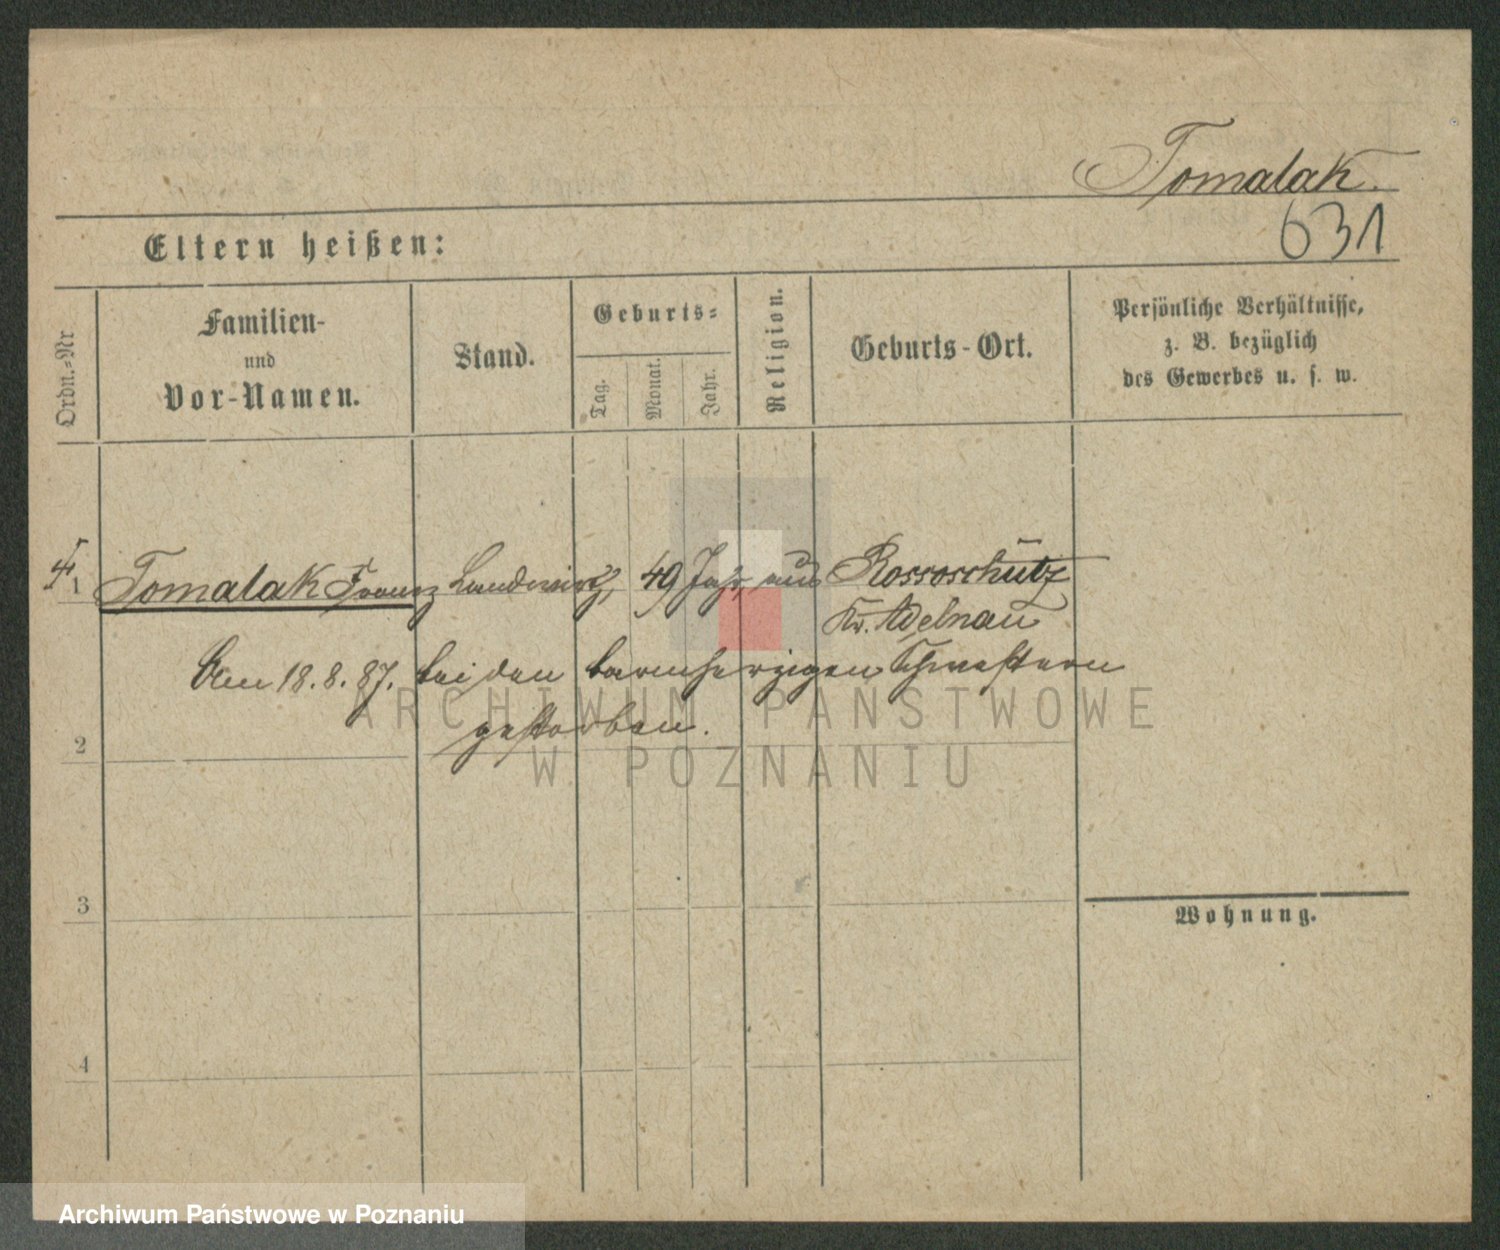 Tomalak.
631
Eltern heißen:
Ordn.-Nr
Familien-
und
Vor-Namen.
Stand.
Geburts-
Tag.
Monat.
Jahr.
Religion.
Geburts-Ort.
Persönliche Verhältnisse,
z. B. bezüglich
des Gewerbes u. s. w.
1 Tomalak Franz Landwirth, 49 Jahr, aus Rossoschütz
Kr. Adelnau
Am 18.8.87. bei den barmherzigen Schwestern
gestorben.
2
3
4
Wohnung.
ARCHIWUM PAŃSTWOWE
W POZNANIU
Archiwum Państwowe w Poznaniu